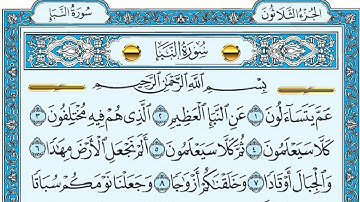 الجزء الثلاثون سورة النبإ
سورة النبإ
بسم الله الرحمن الرحيم
عَمَّ يَتَسَآءَلُونَ ١ عَنِ ٱلنَّبَإِ ٱلْعَظِيمِ ٢ ٱلَّذِى هُمْ فِيهِ مُخْتَلِفُونَ ٣
كَلَّا سَيَعْلَمُونَ ٤ ثُمَّ كَلَّا سَيَعْلَمُونَ ٥ أَلَمْ نَجْعَلِ ٱلْأَرْضَ مِهَٰدًا ٦
وَٱلْجِبَالَ أَوْتَادًا ٧ وَخَلَقْنَٰكُمْ أَزْوَٰجًا ٨ وَجَعَلْنَا نَوْمَكُمْ سُبَاتًا